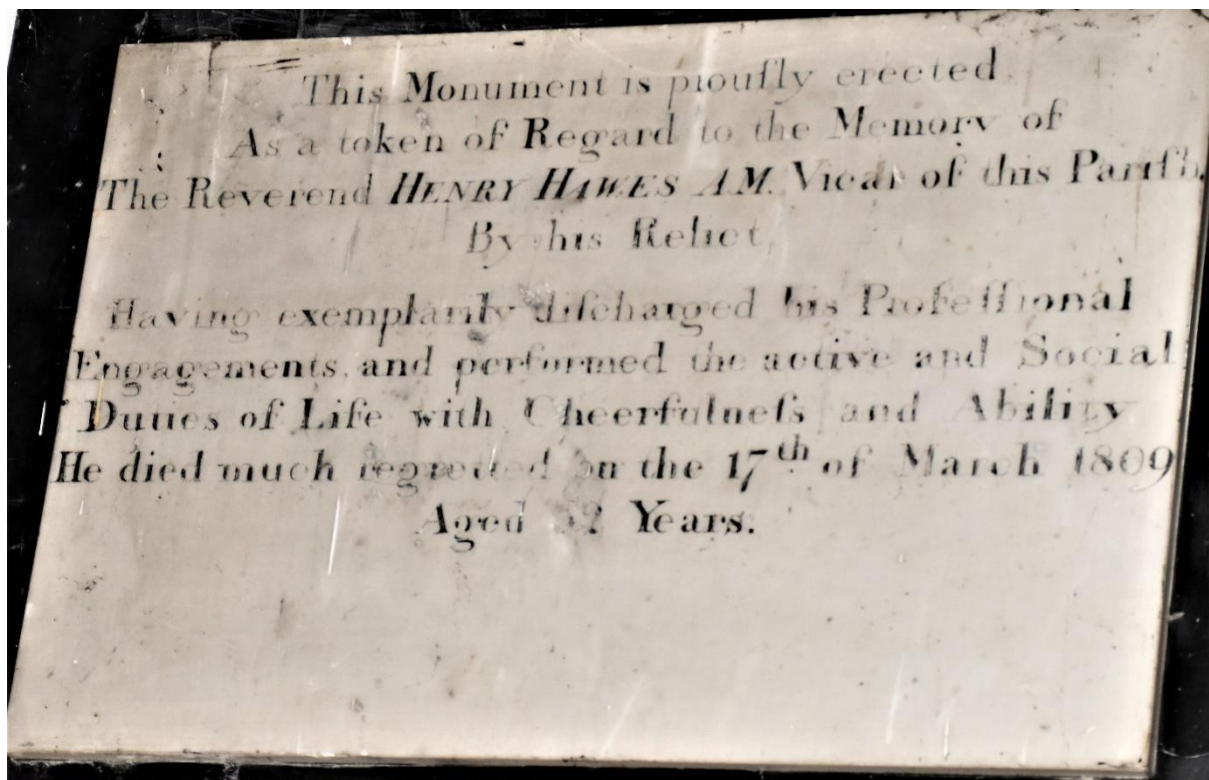 This Monument is piouſly erected
As a token of Regard to the Memory of
The Reverend HENRY HAWES AM. Vicar of this Pariſh
By his Relict,
Having exemplarily diſcharged his Profeſſional
Engagements, and performed the active and Social
Duties of Life with Cheerfulneſs and Ability
He died much regretted on the 17th of March 1809
Aged Years.